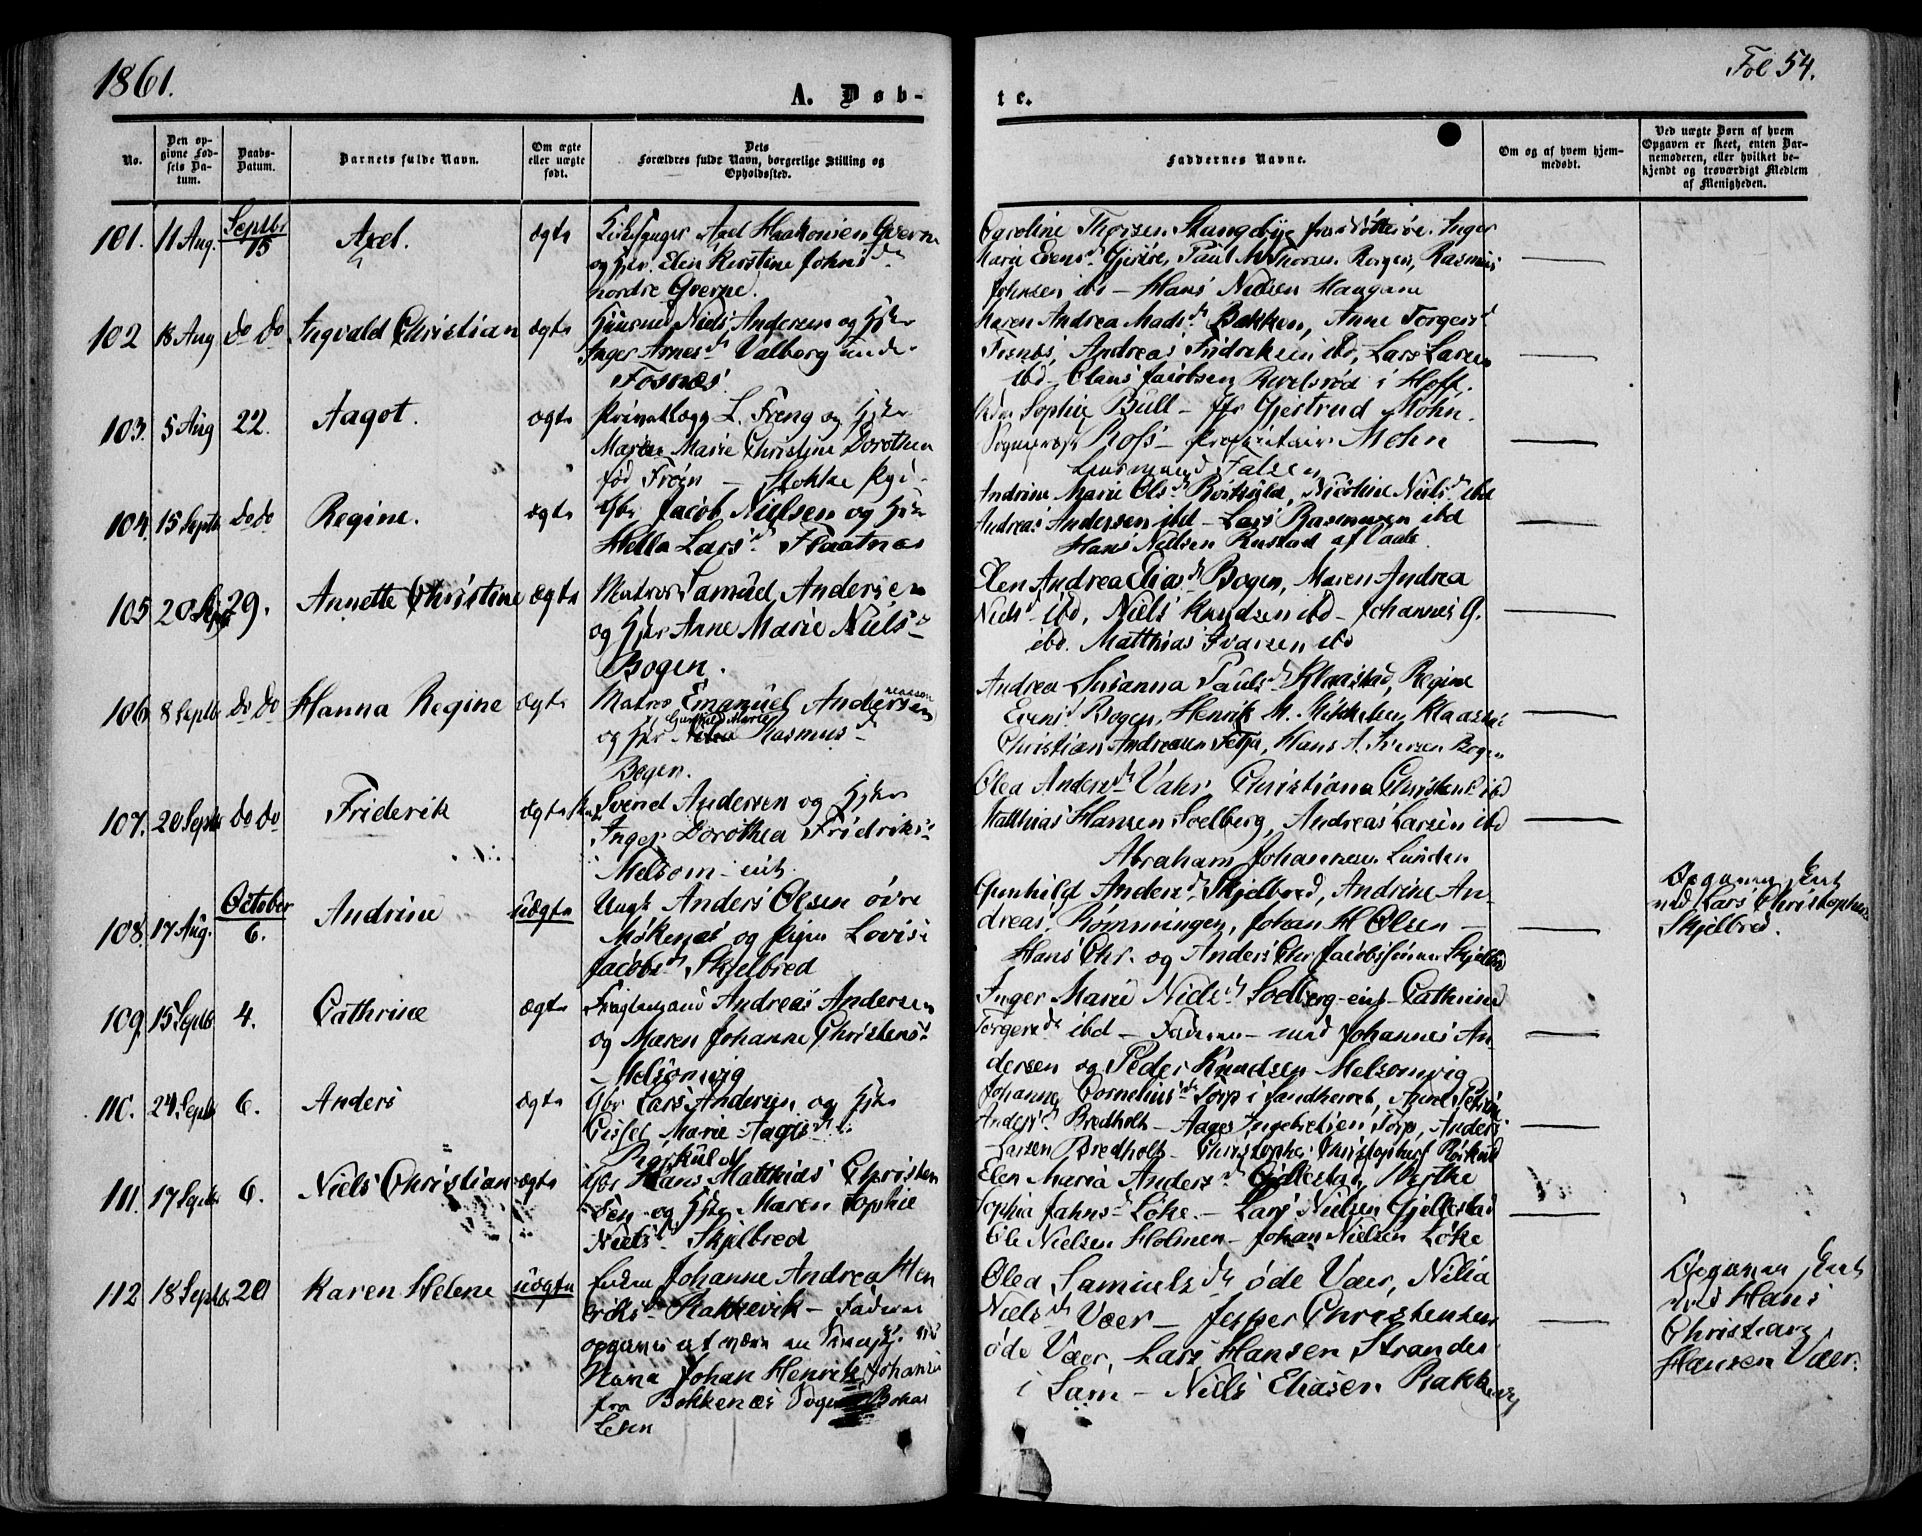 1861.
Fol 54.
A. Døb-
te.
No.
Den op-
givne Fød-
sels Da-
tum.
Daabs-
Datum.
Barnets fulde Navn.
Om ægte
eller uægte
født.
Dets
Forældres fulde Navn, borgerlige Stilling og
Opholdssted.
Faddernes Navne.
Om og af hvem hjem-
medøbt.
Ved uægte Børn af hvem
Opgaven er skeet, enten Bar-
nemoderen, eller hvilket be-
kjendt og troværdigt Medlem
af Menigheden.
101. 11 Aug. Septbr 15 Axel. ægte
Axel Haakonsen Gverne
og Hst. Elen Kirstine Johnsdr
nordre Gverne.
Caroline Thorsen Stangebye fra Nøtterøe. Inger
Marie Evensdr Paul M Thorsen Borgen, Rasmus
Johnsen ibd – Hans Nielsen Haugane
102 18 Aug do do Ingvald Christian ægte
Huusmd Niels Andersen og Hstr
Inger Arnesdr Valberg unde-
Fosnæs.
Maren Andrea Madsdr Bakken, Anne Torgersdr
Fosnæs, Andreas Fridriksen ibd, Lars Larsen
ibd – Claus Jacobsen Revelsrød i Hoff.
103. 5 Aug 22. Aagot. ægte
Privatlæge L. Freng og Hstr
Maren Marie Christine Dorothea
fød Frøen – Stokke Pgj.
Sophie Bull – Gjertrud Mohn.
Sognepræst Ross – Proprietair Mohn
Falsen
104. 15 Septb do do Regine. ægte
Gbr Jacob Nielsen og Hstr
Hella Larsdr Flaatnæs
Andrine Marie Olsdr Nicoline Nielsdr ibd
Andreas Andersen ibd – Lars Rasmussen ibd
Hans Nielsen Rustad af Vaale.
105 20 Sept 29. Annette Christine ægte
Matros Samuel Andersen
og Hstr Anne Marie Nielsdr
Bogen.
Elen Andrea Eliasdr Bogen, Maren Andrea
Nielsdr ibd, Niels Knudsen ibd – Johannes G.
ibd. Matthias Ivarsen ibd
106 8 Septb do do Hanna Regine ægte
Matros Emanuel Andersen
og Hstr Rasmusdr
Bogen.
Andrea Susanna Paulsdr Klaastad, Regine
Evensdr Bogen, Henrik M. Mikkelsen, Klaastad
Christian Andreasen Feta, Hans A. Iversen Bogen
107. 20 Septb do do Friderik ægte
Svend Andersen og Hstr
Inger Dorothea Fridriksdr
Melsom – eiet
Olea Andersdr Valø Christiane Christensdr ibd
Matthias Hansen Solberg, Andreas Larsen ibd
Abraham Johannesen Lunden
108. 17 Aug. October 6. Andrine uægte
Ungk Anders Olsen øvre
Møkenæs og Pigen Lovise
Jacobsdr Skjelbred
Gunhild Andersdr Skjelbred, Andrine An-
dreasdr Rømmingen, Johan H Olsen –
Hans Chr. og Anders Chr Jacobssønner Skjelbred
Opgaven skeet
ved Lars Christophersen
Skjelbred.
109. 15 Septb 4. Cathrine ægte
Andreas Andersen
og Maren Johanne Christensdr
– Melsomvig
Inger Marie Nielsdr Soelberg – eiet – Cathrine
Torgersdr ibd – Faderen – med Johannes An-
dersen og Peder Knudsen Melsomvig
110. 24 Septb 6. Anders ægte
Gbr Lars Andersen og Hstr
Gissel Marie Aagesdr
Røskuld
Johanne Corneliusdr Torp i Sandherred,
Andersdr Bredholt – Aages Ingebretsen Torp, Anders
Larsen Bredholt – Christopher Christophersen Røskuld
111. 17 Septb 6. Niels Christian ægte
Gbr Hans Matthias Christen
sen og Hstr Maren Sophie
Nielsdr Skjelbred
Elen Maria Andersdr Gjellestad, Berthe
Sophia Jahnsdr Løke. – Lars Nielsen Gjellestad
Ole Nielsen Holmen – Johan Nielsen Løke
112 18 Septb 20 Karen Helene uægte
Enken Johanne Andrea Hen
riksdr Rakkevik – Faderen
opgaves at være en Svensk ved
Navn Johan Henrik Johansen
fra Bokkenæs Sogn Bohus
Lehn
Olea Samuelsdr øde Væer, Nilia
Nielsdr Væer – Jesper Christensen
øde Væer, Lars Hansen Strande
i Sem – Niels Eliasen Rakkevig
Opgaven skeet
ved Hans
Christian
Hansen Væer.